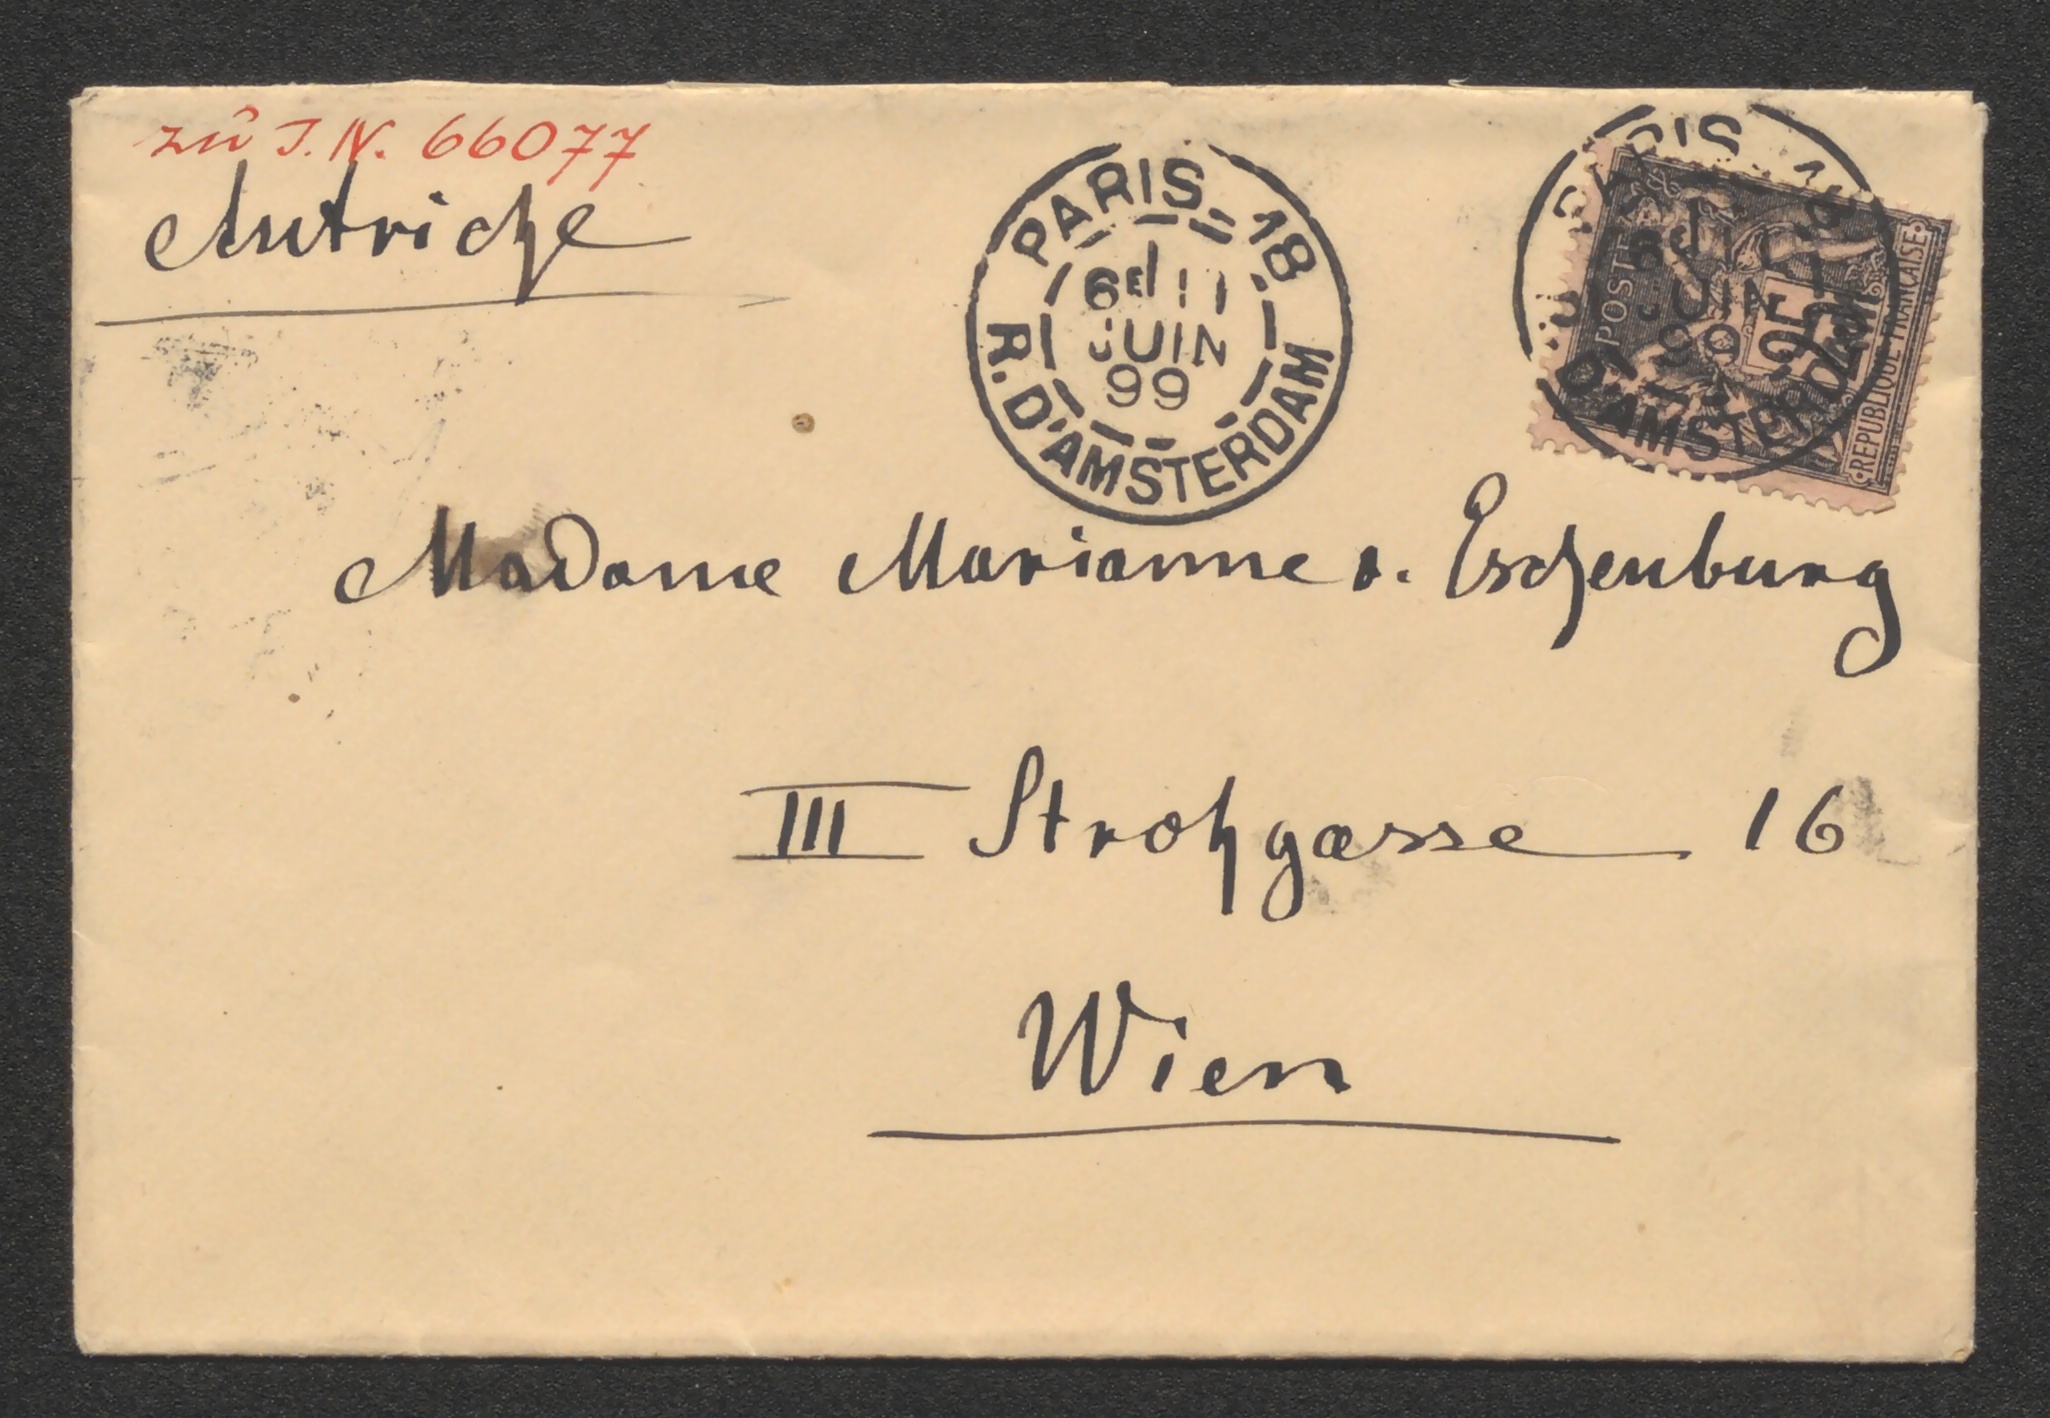 zu J. N. 66077
Autriche
PARIS 18
6E 11
JUIN
99
R. D'AMSTERDAM
PARIS 18
6E 11
JUIN
99
D'AMSTERDAM
POSTE
25
REPUBLIQUE FRANCAISE
Madame Marianne v. Eschenburg
III Strohgasse 16
Wien